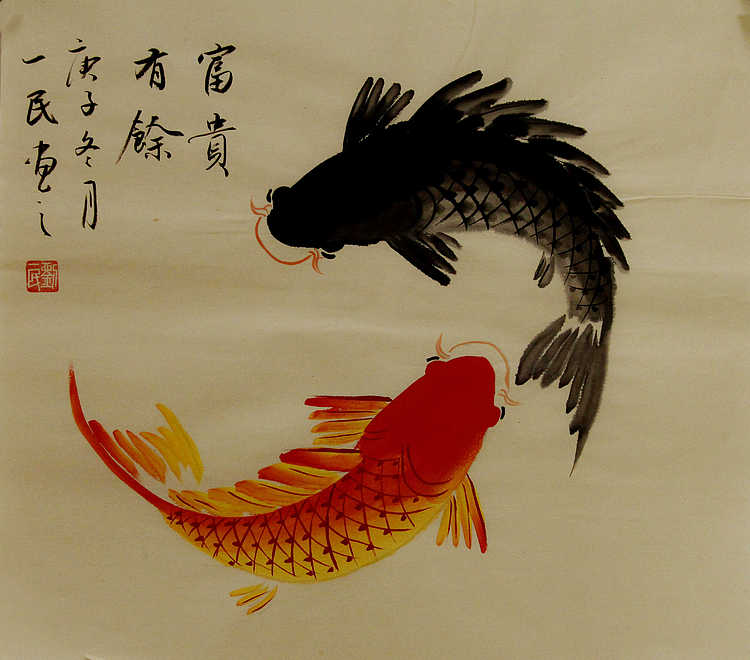 富貴
有餘
庚子冬月
一民画之
劉一民